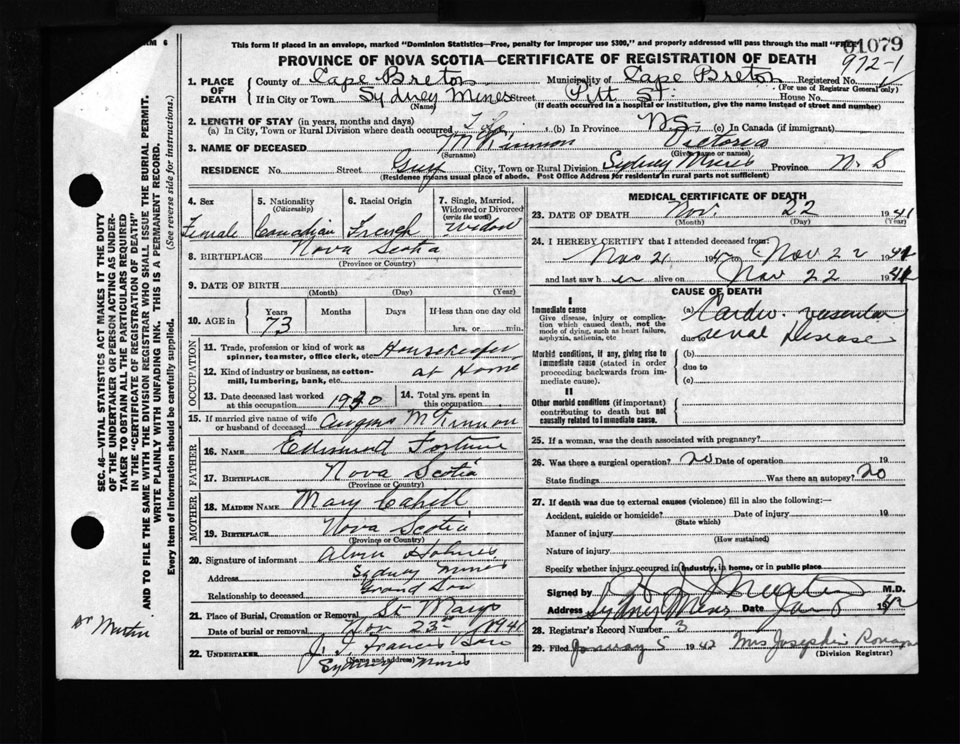 This form if placed in an envelope, marked "Dominion Statistics—Free, penalty for improper use $300," and properly addressed will pass through the mail "FREE"
01079
RM 6
PROVINCE OF NOVA SCOTIA—CERTIFICATE OF REGISTRATION OF DEATH
972-1
1. PLACE OF DEATH
County of Cape Breton Municipality of Cape Breton Registered No.
(For use of Registrar General only)
If in City or Town Sydney Mines Street Pitt St. House No.
(Name) (If death occurred in a hospital or institution, give the name instead of street and number)
2. LENGTH OF STAY (in years, months and days)
(a) In City, Town or Rural Division where death occurred (b) In Province N.S. (c) In Canada (if immigrant)
3. NAME OF DECEASED McKinnon Victoria
(Surname) (Given name or names)
RESIDENCE No. Street City, Town or Rural Division Sydney Mines Province N.S
(Residence means usual place of abode. Post Office Address for residents in rural parts not sufficient)
4. Sex Female
5. Nationality (Citizenship) Canadian
6. Racial Origin French
7. Single, Married, Widowed or Divorced (write the word) Widow
8. BIRTHPLACE Nova Scotia
(Province or Country)
9. DATE OF BIRTH
(Month) (Day) (Year)
10. AGE in Years Months Days If less than one day
73 hrs. or min.
OCCUPATION
11. Trade, profession or kind of work as spinner, teamster, office clerk, etc. Housekeeper
12. Kind of industry or business, as cotton-mill, lumbering, bank, etc. at Home
13. Date deceased last worked at this occupation 1930
14. Total yrs. spent in this occupation
15. If married give name of wife or husband of deceased Angus McKinnon
FATHER
16. NAME Edmond Fortune
17. BIRTHPLACE Nova Scotia
(Province or Country)
MOTHER
18. MAIDEN NAME Mary Cahill
19. BIRTHPLACE Nova Scotia
(Province or Country)
20. Signature of informant Alvin Holmes
Address Sydney Mines
Relationship to deceased Grand Son
21. Place of Burial, Cremation or Removal St Marys
Date of burial or removal Nov 23 1941
22. UNDERTAKER J. J. Francis Son
(Name and address)
Sydney Mines
MEDICAL CERTIFICATE OF DEATH
23. DATE OF DEATH Nov. 22 1941
(Month) (Day) (Year)
24. I HEREBY CERTIFY that I attended deceased from:
Nov 21 19 to Nov 22 1941
and last saw her alive on Nov 22 1941
CAUSE OF DEATH
I
Immediate cause
Give disease, injury or complication which caused death, not the mode of dying, such as heart failure, asphyxia, asthenia, etc
(a) Cardio vascular
due to renal disease
Morbid conditions, if any, giving rise to immediate cause (stated in order proceeding backwards from immediate cause).
(b)
due to
(c)
II
Other morbid conditions (if important) contributing to death but not causally related to immediate cause.
25. If a woman, was the death associated with pregnancy?
26. Was there a surgical operation? no Date of operation 19
State findings Was there an autopsy? no
27. If death was due to external causes (violence) fill in also the following:—
Accident, suicide or homicide? Date of injury 19
(State which)
Manner of injury
(How sustained)
Nature of injury
Specify whether injury occurred in industry, in home, or in public place
Signed by M.D.
Address Sydney Mines Date Jan 1942
28. Registrar's Record Number 3
29. Filed January 5 1942 Mrs Josephine
(Division Registrar)
SEC. 46—VITAL STATISTICS ACT MAKES IT THE DUTY OF THE UNDERTAKER OR PERSON ACTING AS UNDERTAKER TO OBTAIN ALL THE PARTICULARS REQUIRED IN THE "CERTIFICATE OF REGISTRATION OF DEATH" AND TO FILE THE SAME WITH THE DIVISION REGISTRAR WHO SHALL ISSUE THE BURIAL PERMIT.
WRITE PLAINLY WITH UNFADING INK. THIS IS A PERMANENT RECORD.
Every item of information should be carefully supplied. (See reverse side for instructions.)
Dr Martin